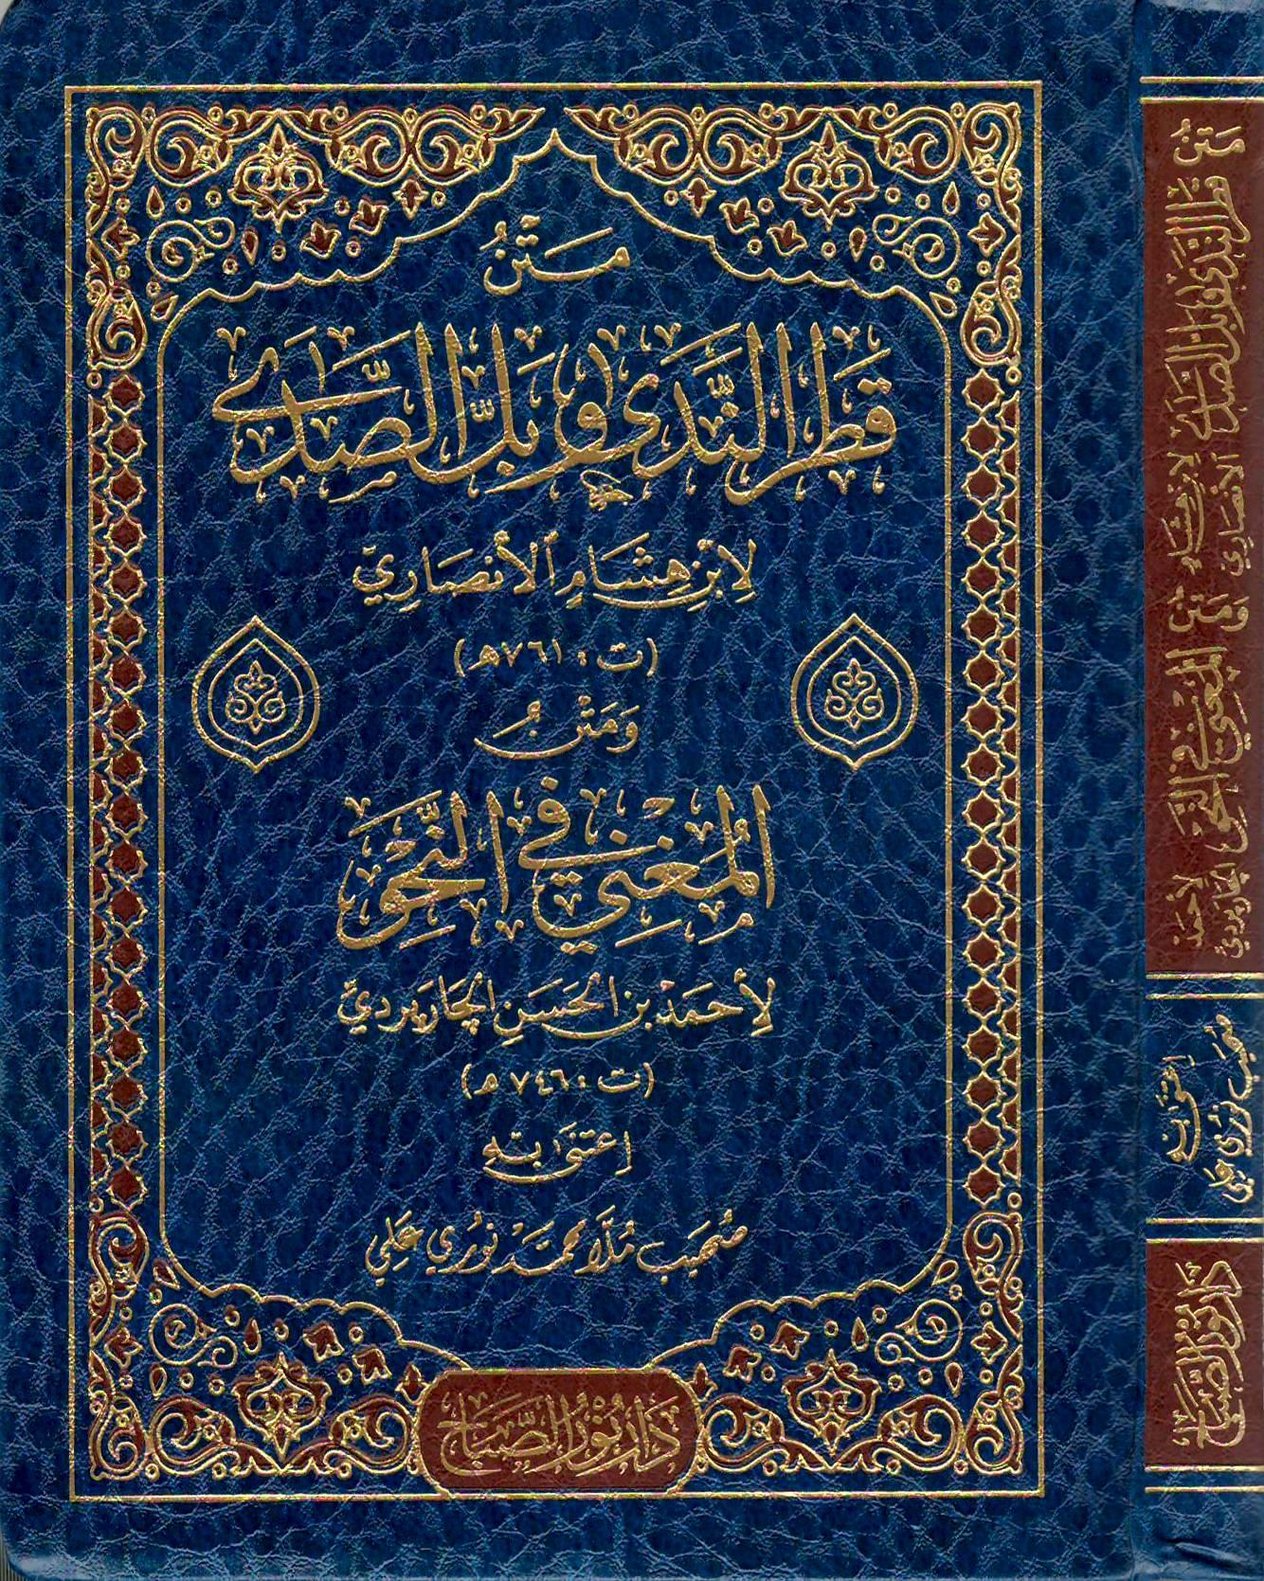 مَتْنُ
قَطْرِ النَّدَى وَبَلِّ الصَّدَى
لِابْنِ هِشَامٍ الْأَنْصَارِيِّ
(ت: ٧٦١هـ)
وَمَتْنُ
الْمُغْنِي فِي النَّحْوِ
لِأَحْمَدَ بْنِ الْحَسَنِ الْجَارَبَرْدِيِّ
(ت: ٧٤٦هـ)
اِعْتَنَى بِهِ
صُهَيْب مُلَّا مُحَمَّد نُورِي عَلِي
دَارُ نُورِ الصَّبَاحِ
مَتْنُ قَطْرِ النَّدَى وَبَلِّ الصَّدَى لِابْنِ هِشَامٍ الْأَنْصَارِيِّ وَمَتْنُ الْمُغْنِي فِي النَّحْوِ لِأَحْمَدَ الْجَارَبَرْدِيِّ
اِعْتَنَى بِهِ
صُهَيْب نُورِي عَلِي
دَارُ نُورِ الصَّبَاحِ